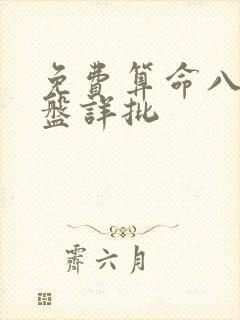 免費算命八
盤詳批
霽六月